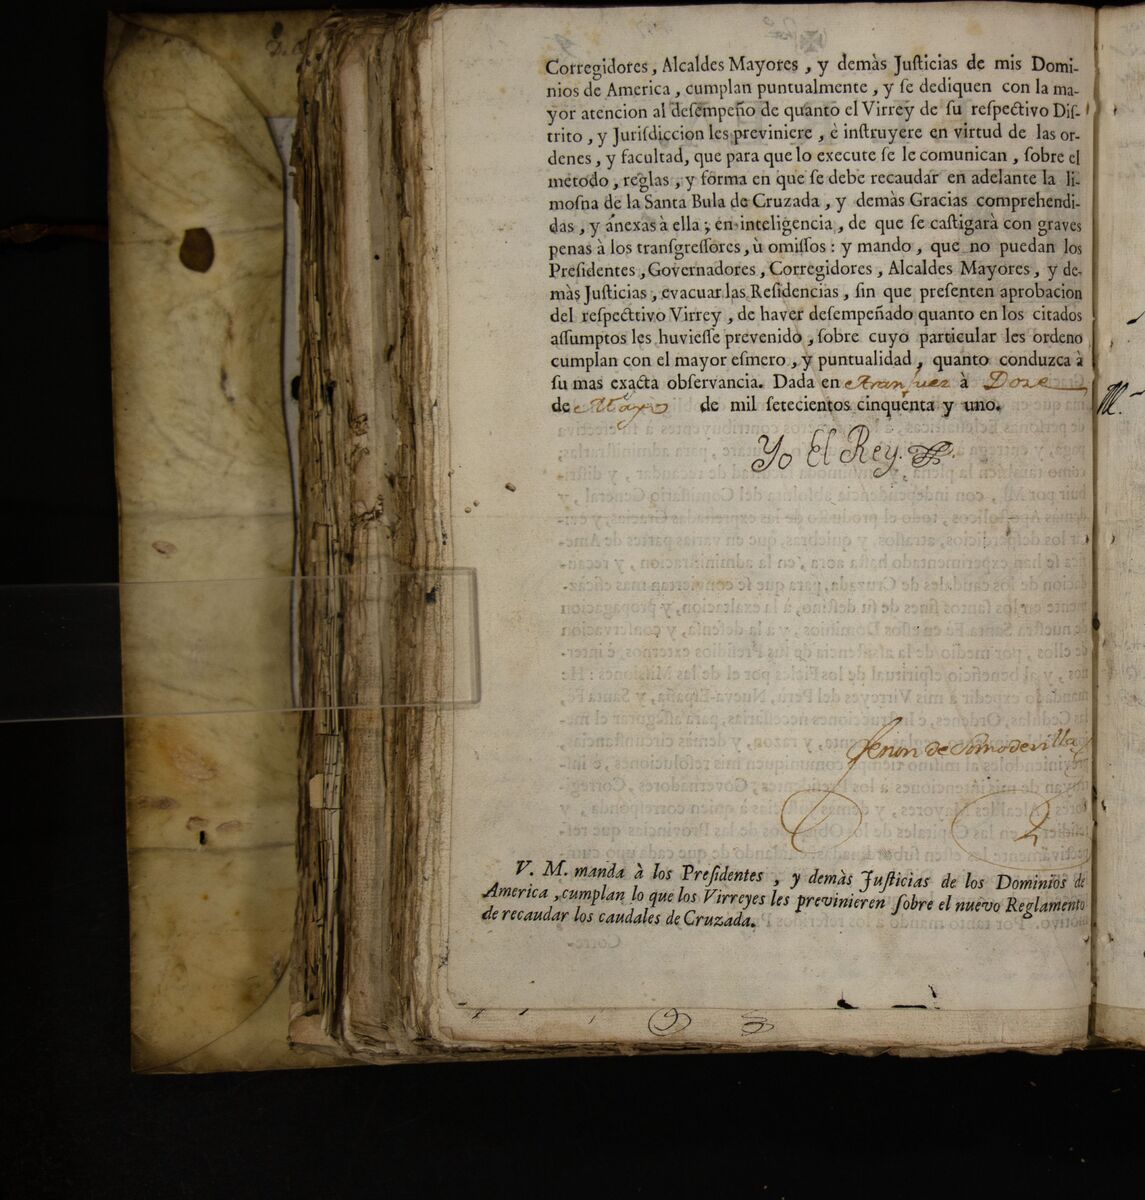 Corregidores, Alcaldes Mayores, y demàs Juſticias de mis Domi-
nios de America, cumplan puntualmente, y ſe dediquen con la ma-
yor atencion al deſempeño de quanto el Virrey de ſu reſpectivo Diſ-
trito, y Juriſdiccion les previniere, è inſtruyere en virtud de las or-
denes, y facultad, que para que lo execute ſe le comunican, ſobre el
metodo, reglas, y forma en que ſe debe recaudar en adelante la li-
moſna de la Santa Bula de Cruzada, y demàs Gracias comprehendi-
das, y ánexas à ella; en inteligencia, de que ſe caſtigarà con graves
penas à los tranſgreſſores, ù omiſſos: y mando, que no puedan los
Preſidentes, Governadores, Corregidores, Alcaldes Mayores, y de-
màs Juſticias, evacuar las Reſidencias, ſin que preſenten aprobacion
del reſpectivo Virrey, de haver deſempeñado quanto en los citados
aſſumptos les huvieſſe prevenido, ſobre cuyo particular les ordeno
cumplan con el mayor eſmero, y puntualidad, quanto conduzca à
ſu mas exacta obſervancia. Dada en Aranjuez à Doze
de Mayo de mil ſetecientos cinquenta y uno.
Yo El Rey
Zenon de Somodevilla
V. M. manda à los Preſidentes, y demàs Juſticias de los Dominios de
America, cumplan lo que los Virreyes les previnieren ſobre el nuevo Reglamento
de recaudar los caudales de Cruzada.